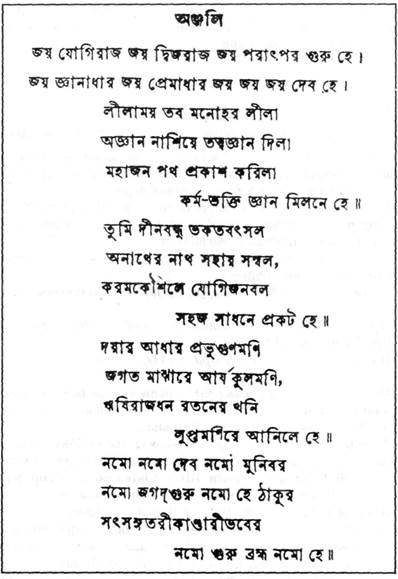 অঞ্জলি
জয় যোগিরাজ জয় দ্বিজরাজ জয় পরাৎপর গুরু হে।
জয় জ্ঞানাধার জয় প্রেমাধার জয় জয় জয় দেব হে।
লীলাময় তব মনোহর লীলা
অজ্ঞান নাশিয়ে তত্বজ্ঞান দিলা
মহাজন পথ প্রকাশ করিলা
কর্ম-ভক্তি জ্ঞান মিলনে হে॥
তুমি দীনবন্ধু ভকতবৎসল
অনাথের নাথ সহায় সম্বল,
করমকৌশলে যোগিজনবল
সহজ সাধনে প্রকট হে॥
দয়ার আধার প্রভুগুণমণি
জগত মাঝারে আর্যকুলমণি,
ঋষিরাজধন রতনের খনি
লুপ্তমণিরে আনিলে হে॥
নমো নমো দেব নমো মুনিবর
নমো জগদ্গুরু নমো হে ঠাকুর
সৎসঙ্গতরীকাণ্ডারীভবের
নমো গুরু ব্রহ্ম নমো হে॥